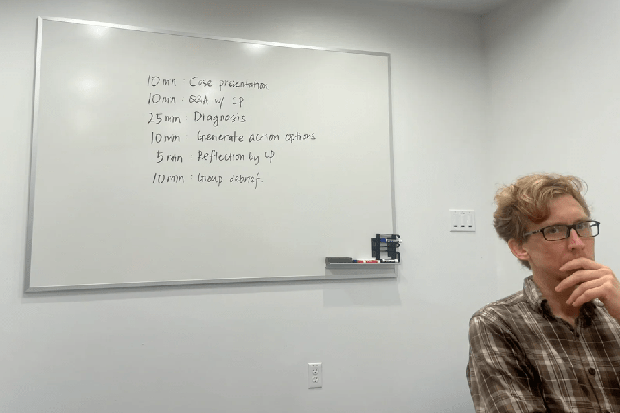 10 min : Case presentation
10 min : Q&A w/ CP
25 min : Diagnosis
10 min : Generate action options
5 min Reflection by CP
10 min : Group debrief